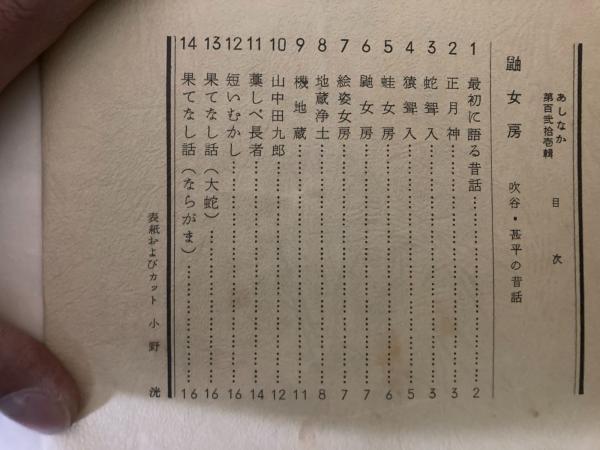 あしなか
第百弐拾壱輯
目次
鼬女房 吹谷・甚平の昔話
1 最初に語る昔話 2
2 正月神 3
3 蛇聟入 3
4 猿聟入 5
5 蛙女房 6
6 鼬女房 7
7 絵姿女房 7
8 地蔵浄土 8
9 機地蔵 11
10 山中田九郎 12
11 藁しべ長者 14
12 短いむかし 16
13 果てなし話（大蛇） 16
14 果てなし話（ならがま） 16
表紙およびカット 小野 洸